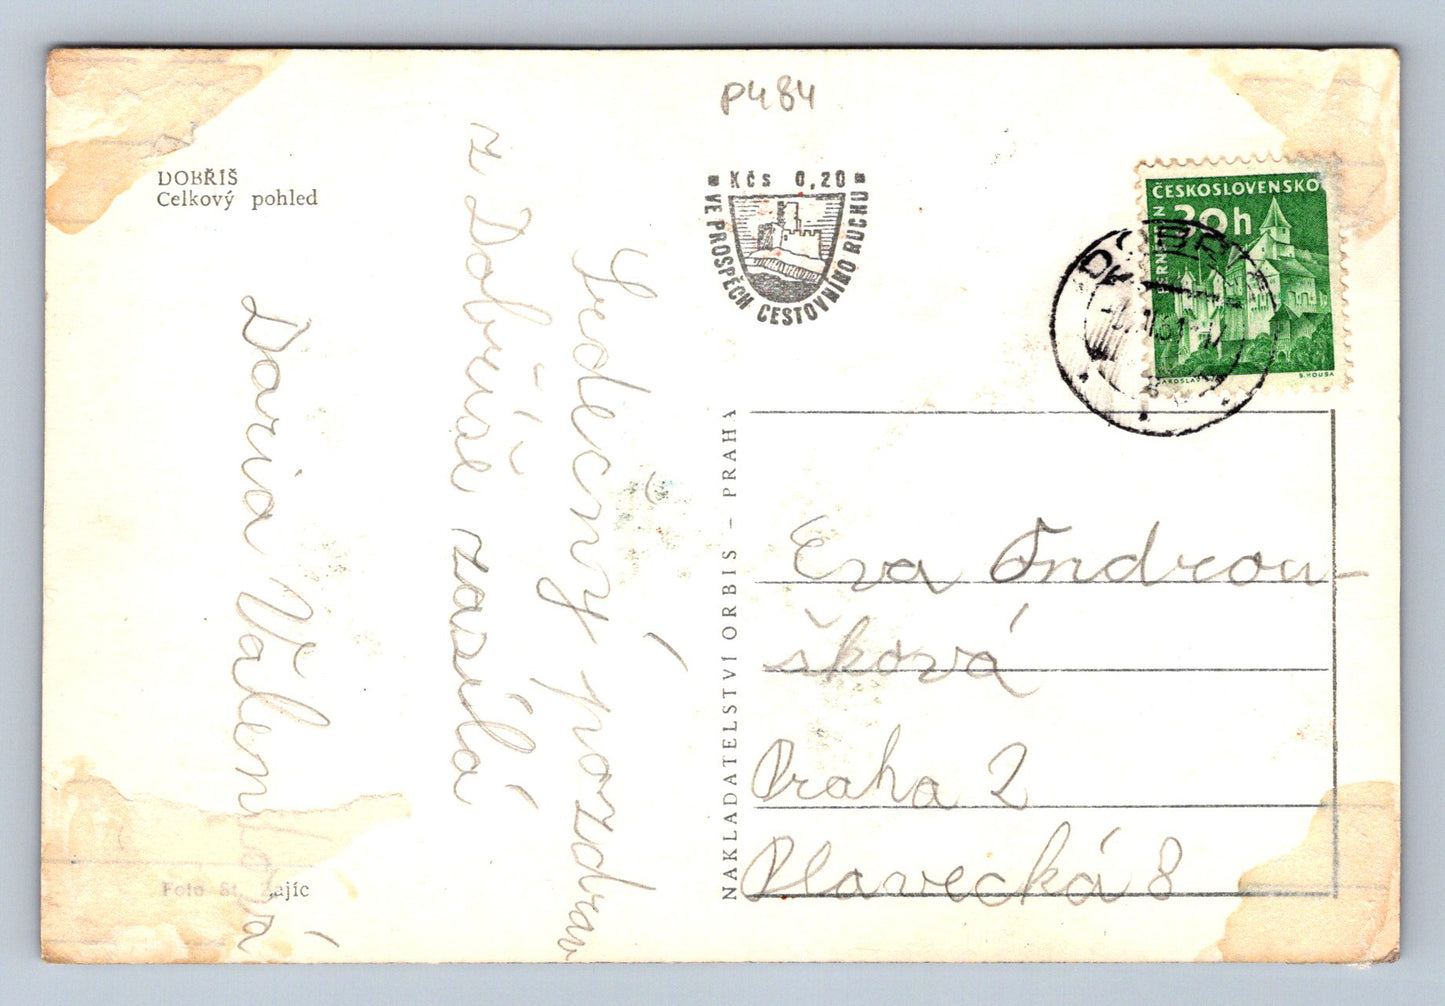 P484
DOBŘÍŠ
Celkový pohled
Kčs 0,20
VE PROSPĚCH CESTOVNÍHO RUCHU
ČESKOSLOVENSKO
30h
S. HOUSA
DOBŘÍŠ
Srdečný pozdrav
z Dobříše zasílá
Daria Válentová
NAKLADATELSTVÍ ORBIS – PRAHA
Eva Ondrou-
šková
Praha 2
Plavecká 8
Foto St. Zajíc